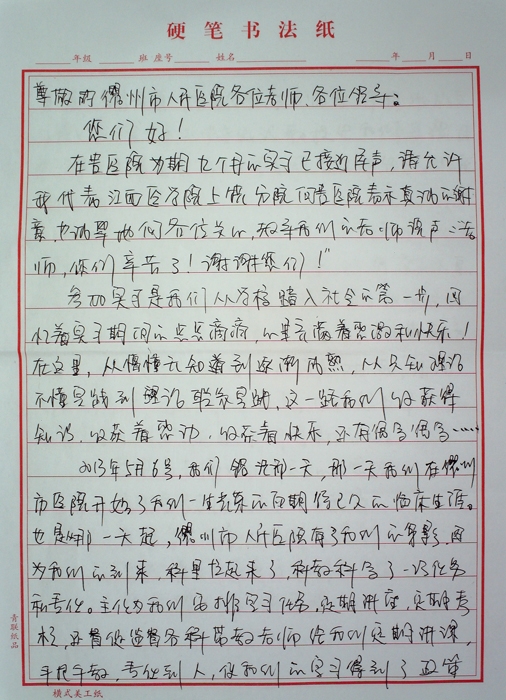 硬笔书法纸
年级 班 座号 姓名 年 月 日
尊敬的儋州市人民医院各位老师、各位领导:
您们好!
在贵医院为期九个月的实习已接近尾声,请允许
我代表江西医学院上饶分院向贵医院表示真诚的谢
意,也诚挚地向各位关心、教导我们的老师说声:“老
师,你们辛苦了!谢谢您们!”
参加实习是我们从学校踏入社会的第一步,回
忆着实习期间的点点滴滴,心里充满着感激和快乐!
在这里,从懵懂无知道到逐渐成熟,从只知理论
不懂实践到理论联系实践,这一路我们收获得
知识,收获着感动,收获着快乐,还有偶尔偶尔……
2013年5月6号,我们铭记那一天,那一天我们在儋州
市医院开始了我们一生当中的期待已久的临床生涯。
也是那一天起,儋州市人民医院有了我们的身影,因
为我们的到来,科里忙起来了,科教科多了一份任务
和责任。主任为我们安排实习任务,定期讲座,定期考
核,还督促监督各科带教老师给我们定期讲课,
手把手教,责任到人,使我们的实习得到了
青联纸品
横式美工纸